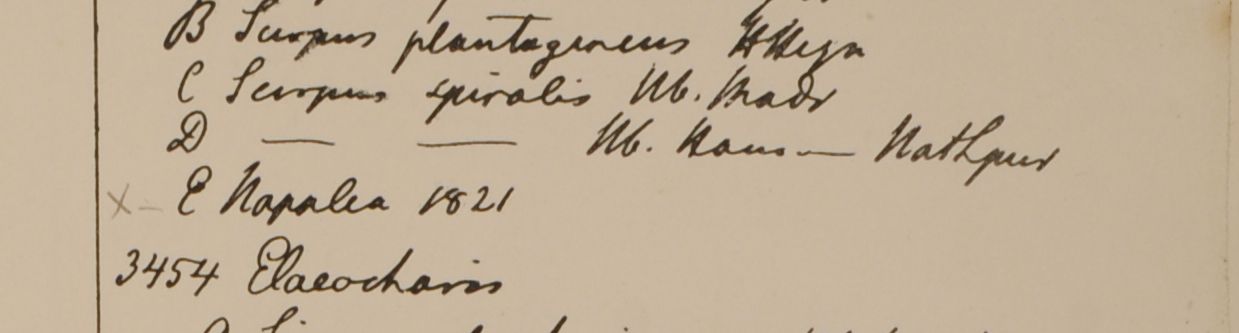 B Scirpus plantagineus HHeyn
C Scirpus spiralis Hb. Madr
D — — Hb. Ham — Nathpur
X - E Napalea 1821
3454 Elaeocharis